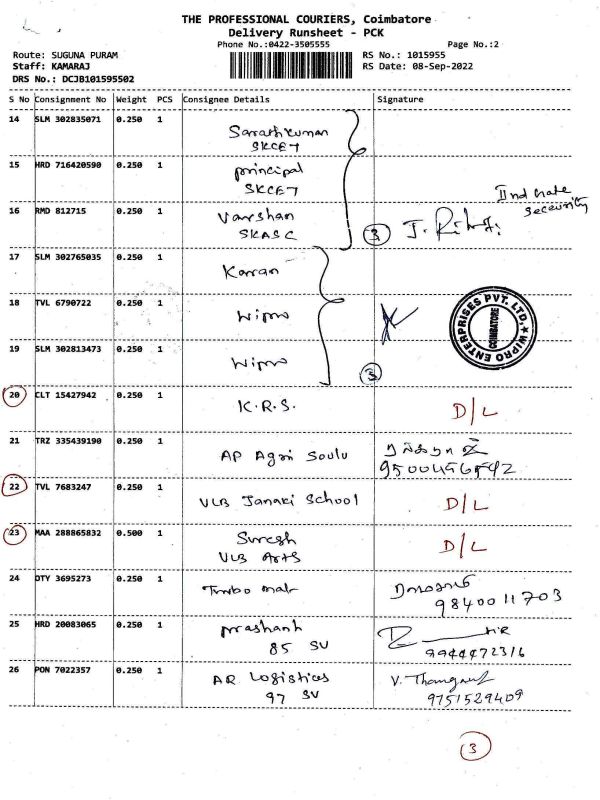 THE PROFESSIONAL COURIERS, Coimbatore
Delivery Runsheet - PCK
Phone No.:0422-3505555 Page No.:2
Route: SUGUNA PURAM RS No.: 1015955
Staff: KAMARAJ RS Date: 08-Sep-2022
DRS No.: DCJB101595502
S No Consignment No Weight PCS Consignee Details Signature
14 SLM 302835071 0.250 1 Sarathkumar
SKCET
15 HRD 716420590 0.250 1 principal
SKCET
IInd Gate
security
16 RMD 812715 0.250 1 Varshan
SKASC
3
17 SLM 302765035 0.250 1 Karran
18 TVL 6790722 0.250 1 Wipro
WIPRO ENTERPRISES PVT. LTD.
COIMBATORE
19 SLM 302813473 0.250 1 Wipro
3
20 CLT 15427942 0.250 1 K.R.S. D/L
21 TRZ 335439190 0.250 1 AP Agni Soulu
22 TVL 7683247 0.250 1 VLB Janaki School D/L
23 MAA 288865832 0.500 1 Suresh D/L
VLB Arts
24 OTY 3695273 0.250 1
9840011703
25 HRD 20083065 0.250 1 Prashanh
85 SV 9944472316
26 PON 7022357 0.250 1 AR Logistics V.
97 SV 9751529409
3